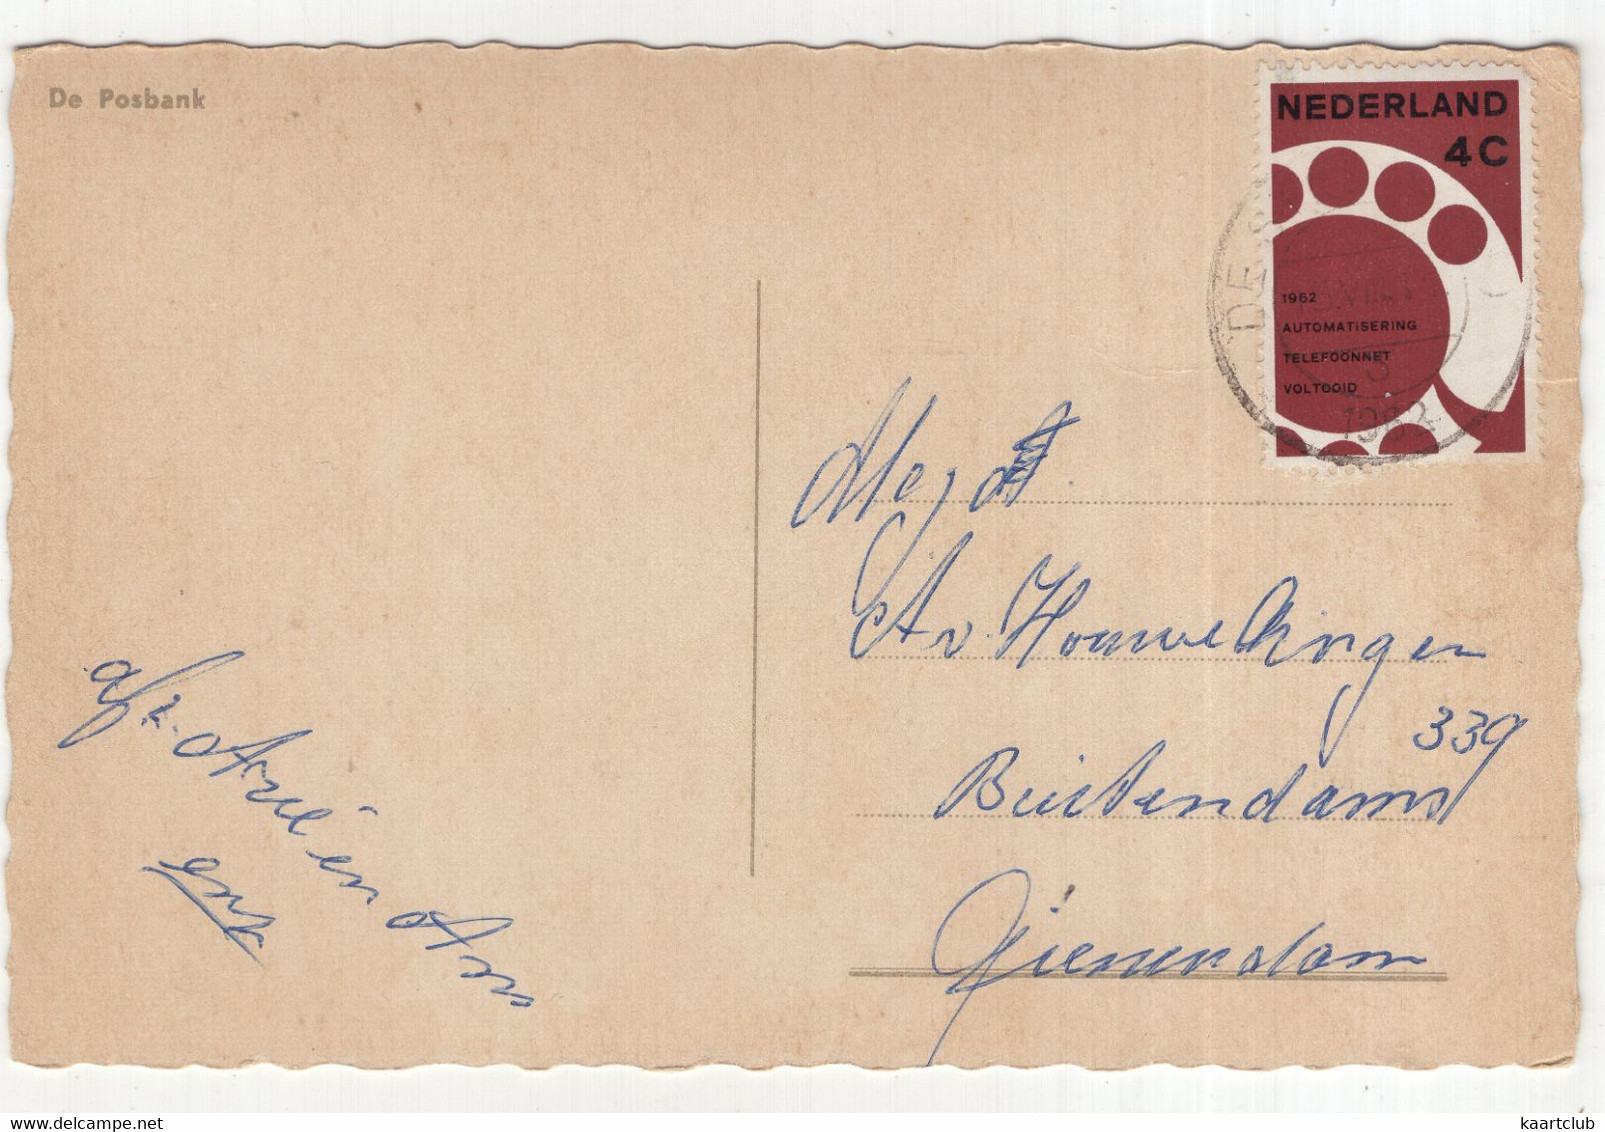 De Posbank
NEDERLAND
4 C
1962
AUTOMATISERING
TELEFOONNET
VOLTOOID
DE S
3
1963
Mej
A v. Houwelingen
339
Buitendams
Giesendam
afz. Arie en An
enk
www.delcampe.net
kaartclub